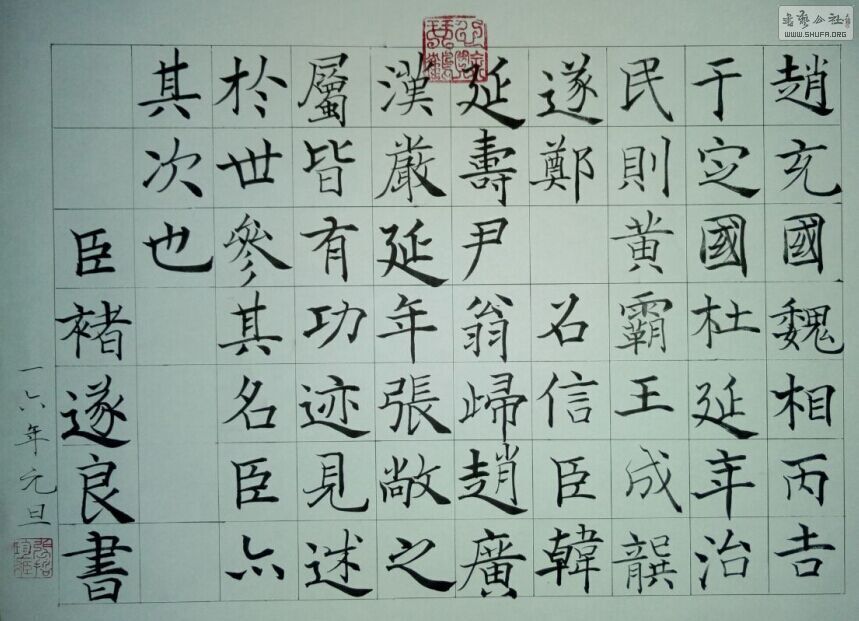 趙充國魏相丙吉
于定國杜延年治
民則黃霸王成龔
遂鄭 名信臣韓
延壽尹翁歸趙廣
漢嚴延年張敞之
屬皆有功迹見述
於世參其名臣亦
其次也
臣褚遂良書
一六年元旦
書藝公社
WWW.SHUFA.ORG